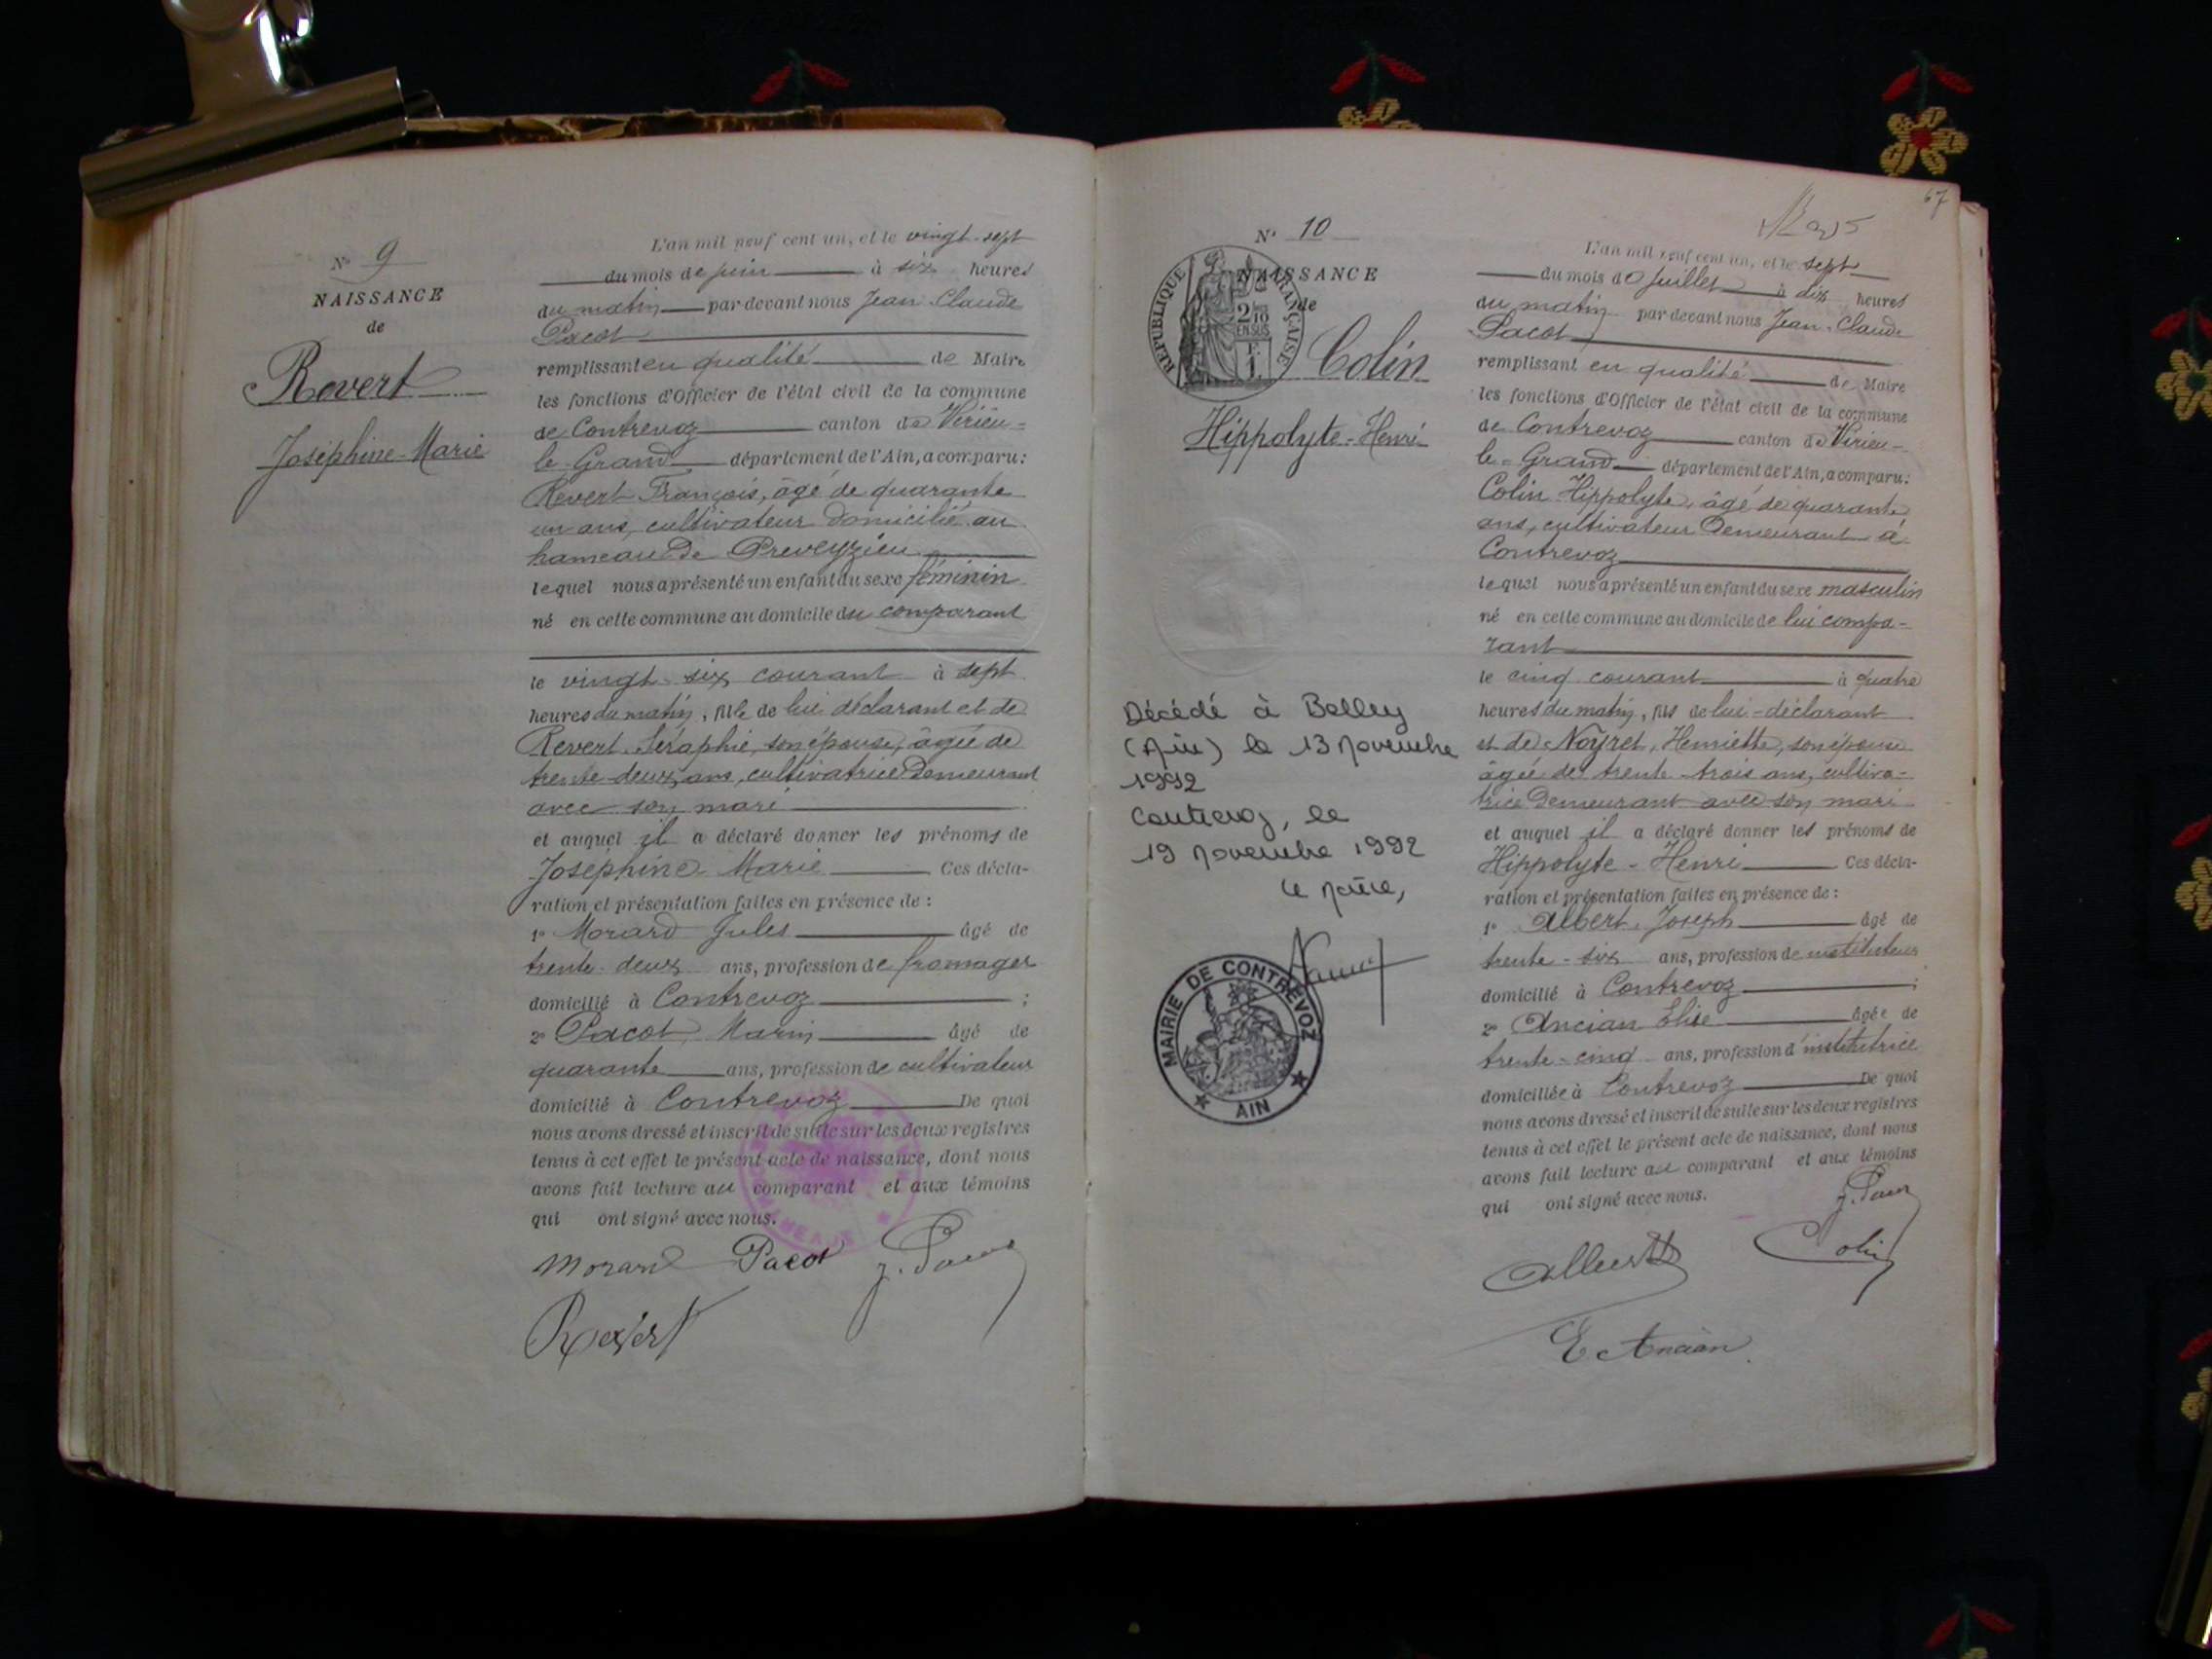 N° 9
NAISSANCE
de
Revert
Joséphine-Marie
L'an mil neuf cent un, et le vingt-sept
du mois de juin à six heures
du matin par-devant nous Jean-Claude
Pacot
remplissant en qualité de Maire
les fonctions d'Officier de l'état civil de la commune
de Contrevoz canton de Virieu-
le-Grand département de l'Ain, a comparu:
Revert François, âgé de quarante
un ans, cultivateur domicilié au
hameau de Preveyzieu
lequel nous a présenté un enfant du sexe féminin
né en cette commune au domicile du comparant
le vingt-six courant à sept
heures du matin, fille de lui déclarant et de
Revert Séraphie, son épouse, âgée de
trente-deux ans, cultivatrice demeurant
avec son mari
et auquel il a déclaré donner les prénoms de
Joséphine-Marie Ces décla-
ration et présentation faites en présence de:
1° Morard Jules âgé de
trente-deux ans, profession de fromager
domicilié à Contrevoz ;
2° Pacot Marin âgé de
quarante ans, profession de cultivateur
domicilié à Contrevoz De quoi
nous avons dressé et inscrit de suite sur les deux registres
tenus à cet effet le présent acte de naissance, dont nous
avons fait lecture au comparant et aux témoins
qui ont signé avec nous.
Morard Pacot J. Pacot
Revert
67
N° 10
REPUBLIQUE FRANÇAISE
2/10 EN SUS
NAISSANCE
de
Colin
Hippolyte-Henri
Décédé à Belley
(Ain) le 13 novembre
1992
Contrevoz, le
19 novembre 1992
Le Maire,
MAIRIE DE CONTREVOZ
AIN
L'an mil neuf cent un, et le sept
du mois de Juillet à dix heures
du matin par-devant nous Jean-Claude
Pacot
remplissant en qualité de Maire
les fonctions d'Officier de l'état civil de la commune
de Contrevoz canton de Virieu-
le-Grand département de l'Ain, a comparu:
Colin Hippolyte, âgé de quarante
ans, cultivateur demeurant à
Contrevoz
lequel nous a présenté un enfant du sexe masculin
né en cette commune au domicile de lui compa-
rant
le cinq courant à quatre
heures du matin, fils de lui-déclarant
et de Noyret, Henriette, son épouse
âgée de trente-trois ans, cultiva-
trice demeurant avec son mari
et auquel il a déclaré donner les prénoms de
Hippolyte-Henri Ces décla-
ration et présentation faites en présence de:
1° Albert, Joseph âgé de
trente-six ans, profession de instituteur
domicilié à Contrevoz ;
2° Ancian Elise âgée de
trente-cinq ans, profession d'institutrice
domiciliée à Contrevoz De quoi
nous avons dressé et inscrit de suite sur les deux registres
tenus à cet effet le présent acte de naissance, dont nous
avons fait lecture au comparant et aux témoins
qui ont signé avec nous.
J. Pacot
Albert Colin
E Ancian